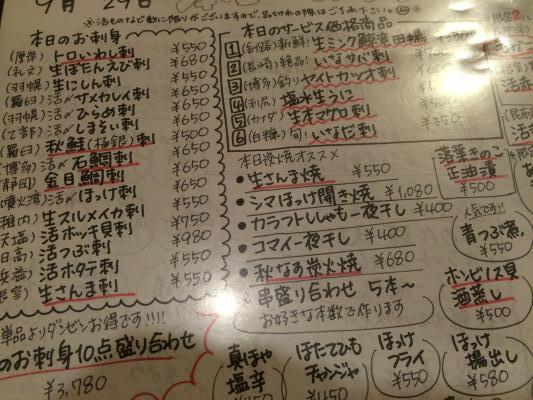 9月 29日
※活ものなど数に限りがございますので、品切れの際はご了承下さい
本日のお刺身
(厚岸) トロいわし刺 ¥550
(礼文) 生ぼたんえび刺 ¥680
(羽幌) 生にしん刺 ¥550
(羅臼) 活〆ザメカレイ刺 ¥650
(羽幌) 活〆ひらめ刺 ¥650
活〆しまぞい刺 ¥650
(羅臼) 秋鮭(極銀)刺
(博多) 活〆石鯛刺 ¥650
(静岡) 金目鯛刺 ¥650
(噴火湾) 活〆ほっけ刺
(稚内) 生スルメイカ刺 ¥550
活ホッキ貝刺 ¥750
活つぶ刺 ¥980
活ホタテ刺 ¥550
生さんま刺 ¥550
単品よりダンゼンお得です!!!!
のお刺身10点盛り合わせ
¥3,780
本日のサービス価格商品
1 (釧路)新鮮!生ミンク鯨
2 (長崎)絶品!いなサバ刺
3 (博多)釣りヤイトカツオ刺
4 (利尻)塩水生うに
5 (カナダ)生本マグロ刺
6 (白糠)旬!いなだ刺
本日炭火焼オススメ
●生さんま焼 ¥550
●シマほっけ開き焼 ¥1,080
●カラフトししゃも一夜干し ¥400
●コマイ一夜干し ¥400
●秋なす炭火焼 ¥680
串盛り合わせ 5本〜
お好きな本数で作ります
落葉きのこ
正油漬
¥500
人気です!!
青つぶ煮
¥550
ホンビノス貝
酒蒸し
¥500
真ほや
塩辛
ほたてひも
チャンジャ
ほっけ
フライ
¥550
ほっけ
揚出し
¥580